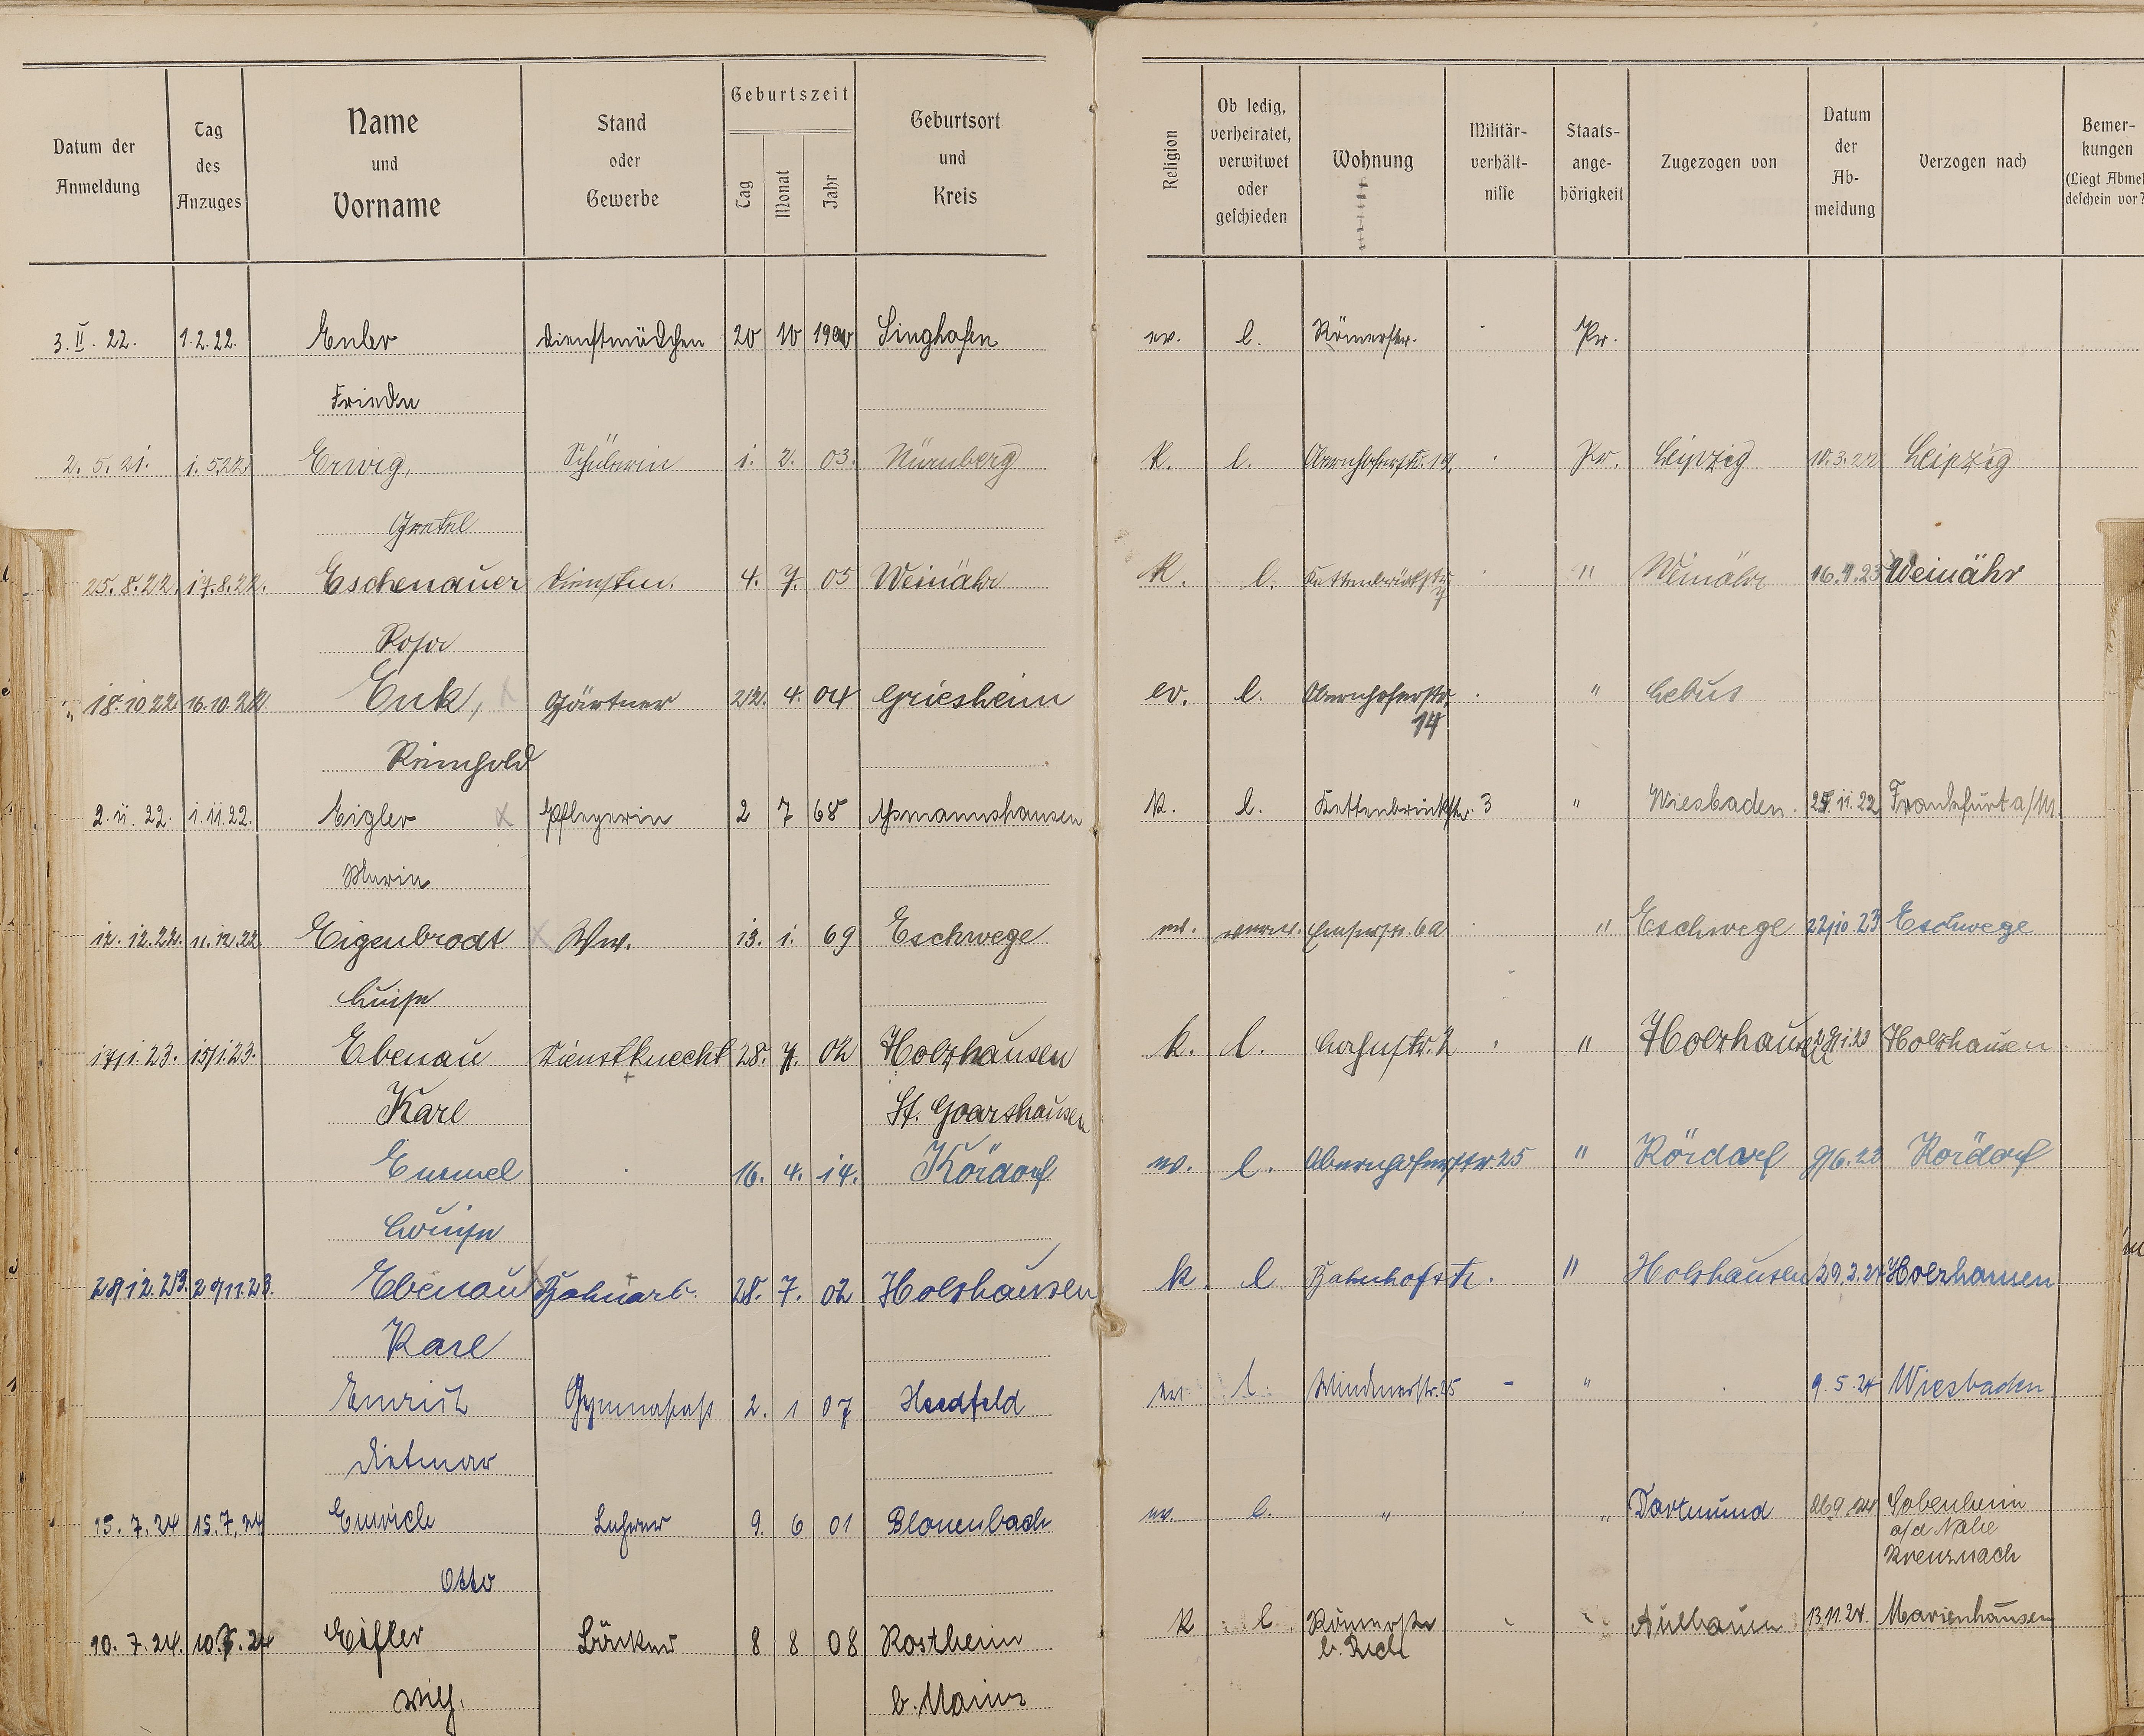 Datum der Anmeldung | Tag des Anzuges | Name und Vorname | Stand oder Gewerbe | Geburtszeit Tag Monat Jahr | Geburtsort und Kreis | Religion | Ob ledig, verheiratet, verwitwet oder geschieden | Wohnung | Militär-verhält-nisse | Staats-ange-hörigkeit | Zugezogen von | Datum der Ab-meldung | Verzogen nach | Bemer-kungen (Liegt Abmel deschein vor?
3. II. 22. 1.2.22. Euler Dienstmädchen 20 10 Singhofen ev. l. Römerstr. Pr.
Frieda
2. 5. 21. 1.5.22. Erwig, Schülerin 1. 2. 03. Nürnberg K. l. Obernhoferstr. 19 Pr. Leipzig 10.3.22 Leipzig
Gretel
25.8.22. 17.8.22. Eschenauer Dienstm. 4. 7. 05 Weinähr K. l. Kettenbrückstr. " Weinähr Weinähr
Rosa
18.10.22 16.10.22 Enk, Gärtner 22. 4. 04 Griesheim ev. l. Obernhoferstr. " Lebus
14
Reinhold
2. 11. 22. 1.11.22. Eigler x Pflegerin 2 7 68 Assmannshausen K. l. Kettenbrückstr. 3 " Wiesbaden. 11.22 Frankfurt a/M.
Maria
12.12.22. 11.12.22 Eigenbrodt x Ww. 13. 1. 69 Eschwege ev. verw. Emserstr. 6a " Eschwege 22/10.23 Eschwege
Luise
17/1.23. 15/1.23. Ebenau Dienstknecht 28. 7. 02 Holzhausen k. l. 2 " Holzhausen 1.23 Holzhausen
Karl St. Goarshausen
Enmel 16. 4. 14. Kördorf ev. l. Obernhoferstr 25 " Kördorf 9/6.23 Kördorf
Louise
28/12.23. 29/11.23. Ebenau x Bahnarb. 28. 7. 02 Holzhausen k. l Bahnhofstr. " Holzhausen 29.2.24 Holzhausen
Karl
Emrich Gymnasiast 2. 1 07 Heedfeld ev. l. Windenerstr. 25 - " 9.5.24 Wiesbaden
Dietmar
15.7.24 15.7.24 Emrich Lehrer 9. 6 01 Blauenbach ev. l. " " Dortmund 26.9.24 Sobenheim
a/d Nahe
Kreuznach
Otto
10.7.24. Eifler Bäcker 8 8 08 Kostheim K l Römerstr Aulhausen 13.11.24. Marienhausen
b.
Wilh. b. Mainz